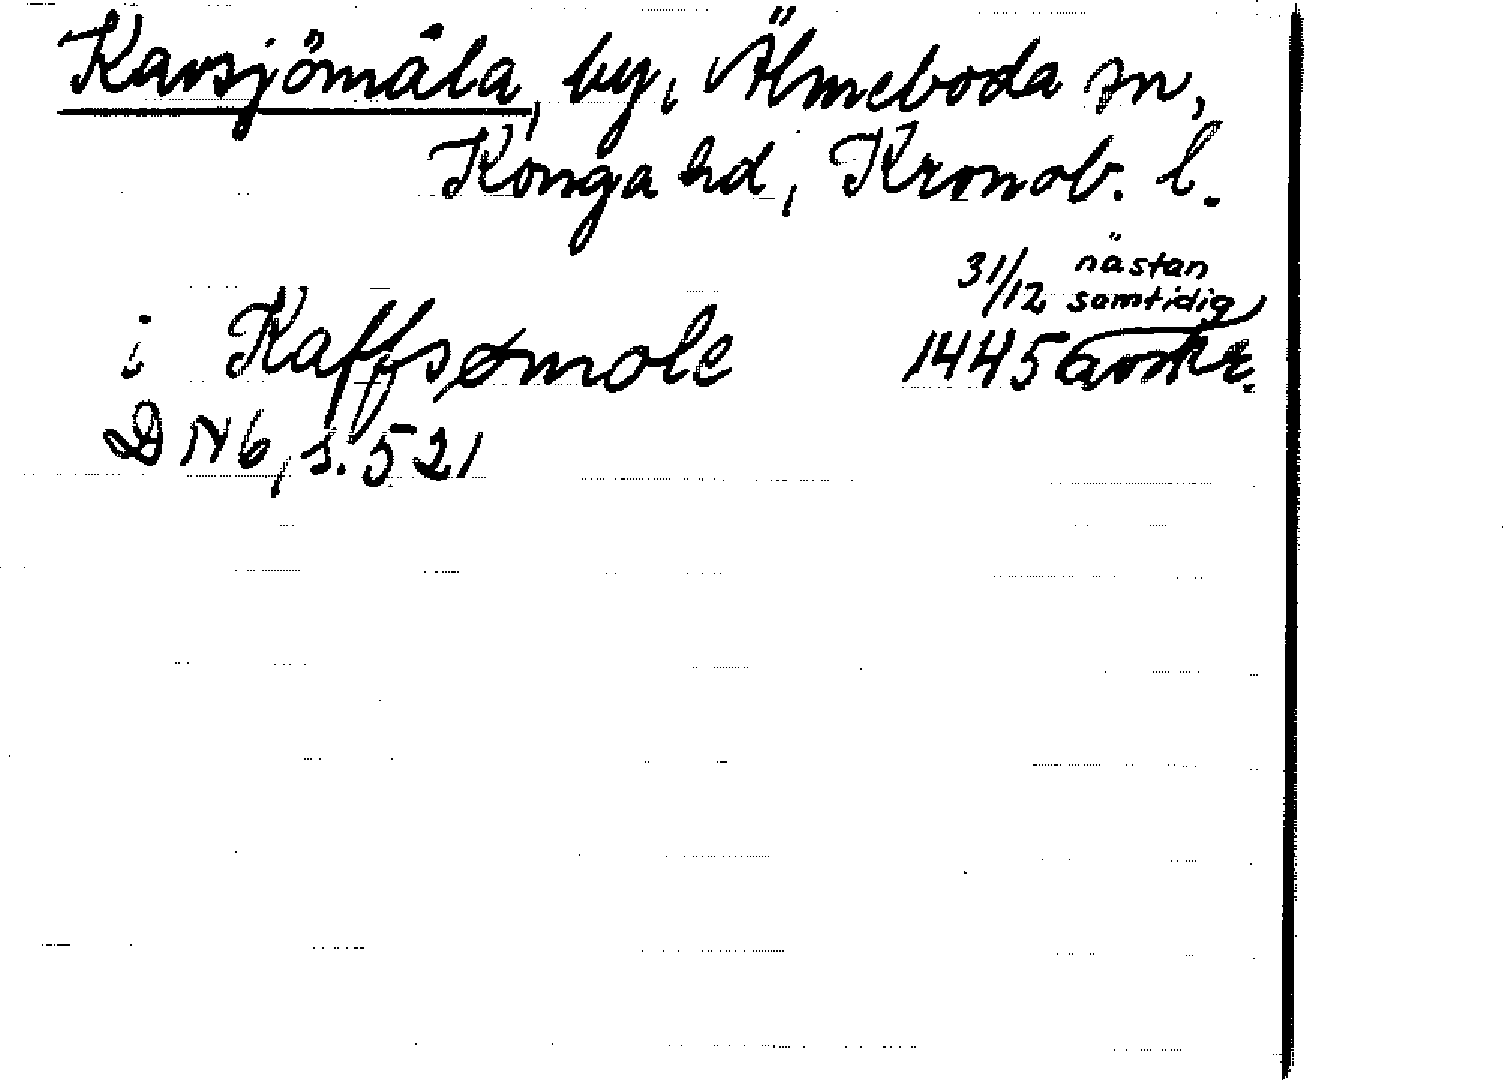 Kavsjömåla, by, Älmeboda sn,
Konga hd, Kronob. l.
31/12 nästan samtidig
i Kaffsømole 1445 avskr.
DN 6, s. 521